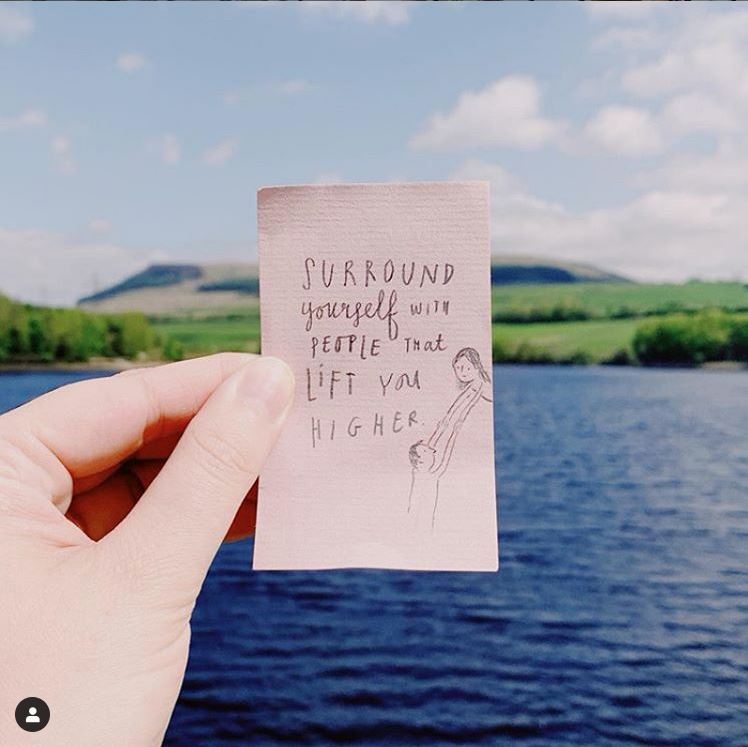 SURROUND
yourself WITH
PEOPLE THat
LiFT YOU
HIGHER.